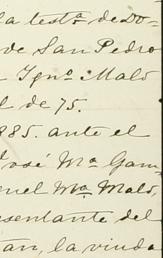 la testa. de Do-
de San Pedro
Ign.º Malo
l de 75.
885. ante el
José Mª Gam-
uel Mª Malo,
esentante del
an, la viuda